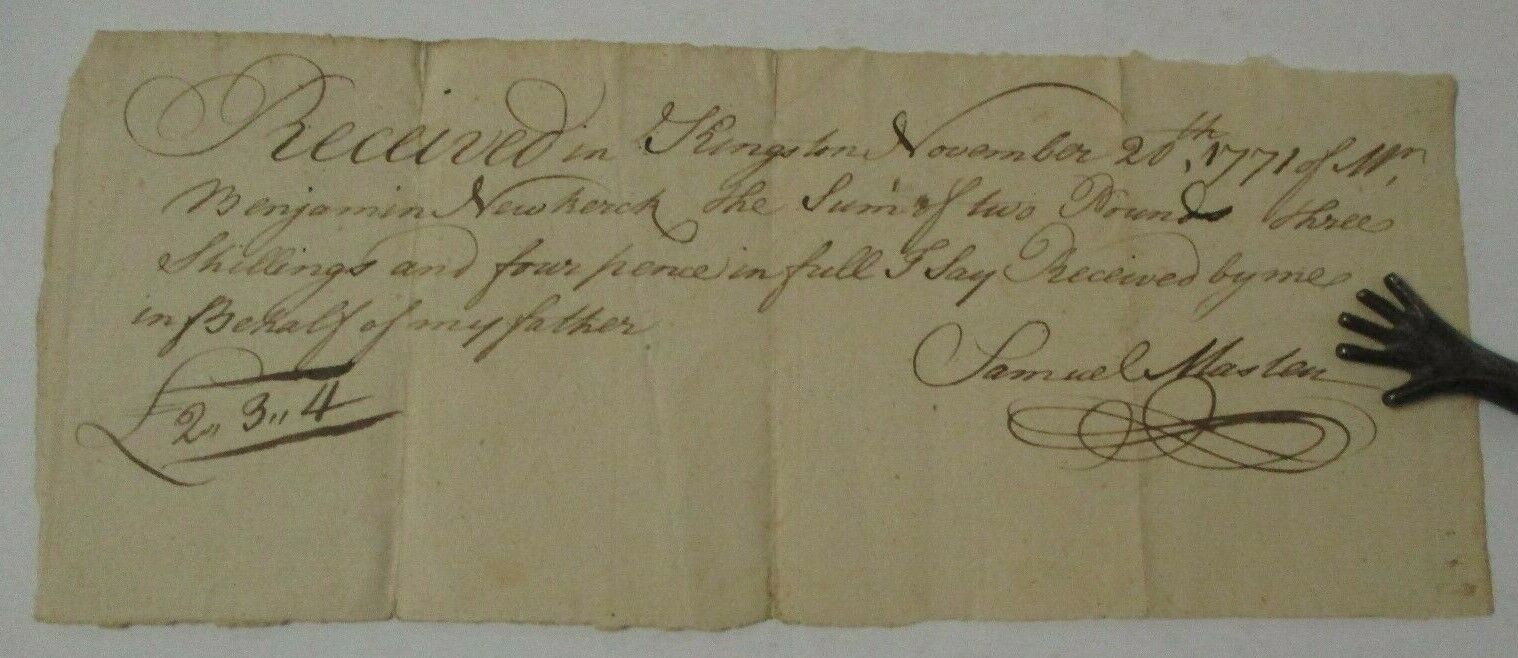 Received in Kingston November 20th, 1771 of Mr,
Benjamin Newkerck the Sum of two Pounds three
Shillings and four pence in full I Say Received by me
in Behalf of my father
Samuel Masten
£2,, 3,, 4